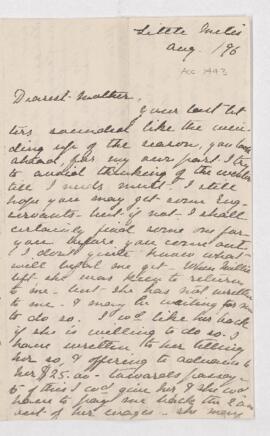 Little Metis
Aug. /96
Acc 1443
Dearest Mother,
Your last let
ters sounded like the win
ding up of the season, you look
ahead, for my own part I try
to avoid thinking of the winter
till I needs must. I still
hope you may get some Eng
servants but if not I shall
certainly find some one for
you before you come out.
I don't quite know what
will befal me yet. When
left she was keen to return
to me. but she has not written
to me. & may be waiting for me
to do so. I wd like her back
if she is willing to do so. I
have written to her telling
her so, & offering to advance to
her $25.00 towards passage
of this I wd give her & she wd
have to pay me back the
out of her wages. she may